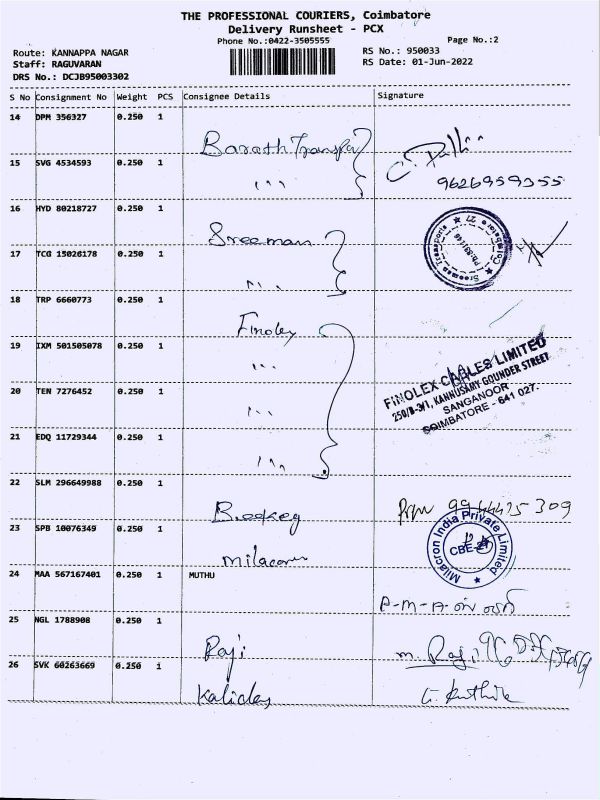 THE PROFESSIONAL COURIERS, Coimbatore
Delivery Runsheet - PCX
Phone No.:0422-3505555
Page No.:2
Route: KANNAPPA NAGAR
RS No.: 950033
Staff: RAGUVARAN
RS Date: 01-Jun-2022
DRS No.: DCJB95003302
S No Consignment No Weight PCS Consignee Details Signature
14 DPM 356327 0.250 1
Barath Transpo
15 SVG 4534593 0.250 1
9626959355
16 HYD 80218727 0.250 1
Sreeman
Sreeman Transports Coimbatore 27
17 TCG 15026178 0.250 1
18 TRP 6660773 0.250 1
Finolex
19 IXM 501505078 0.250 1
FINOLEX CABLES LIMITED
250/B-3/1, KANNUSAMY GOUNDER STREET
SANGANOOR
COIMBATORE - 641 027.
20 TEN 7276452 0.250 1
21 EDQ 11729344 0.250 1
22 SLM 296649988 0.250 1
23 SPB 10076349 0.250 1
Milacron
Milacron India Private Limited
CBE-27
24 MAA 567167401 0.250 1 MUTHU
P-M-A-
25 NGL 1788908 0.250 1
Raji
m. Raji
26 SVK 60263669 0.250 1
Kalidas